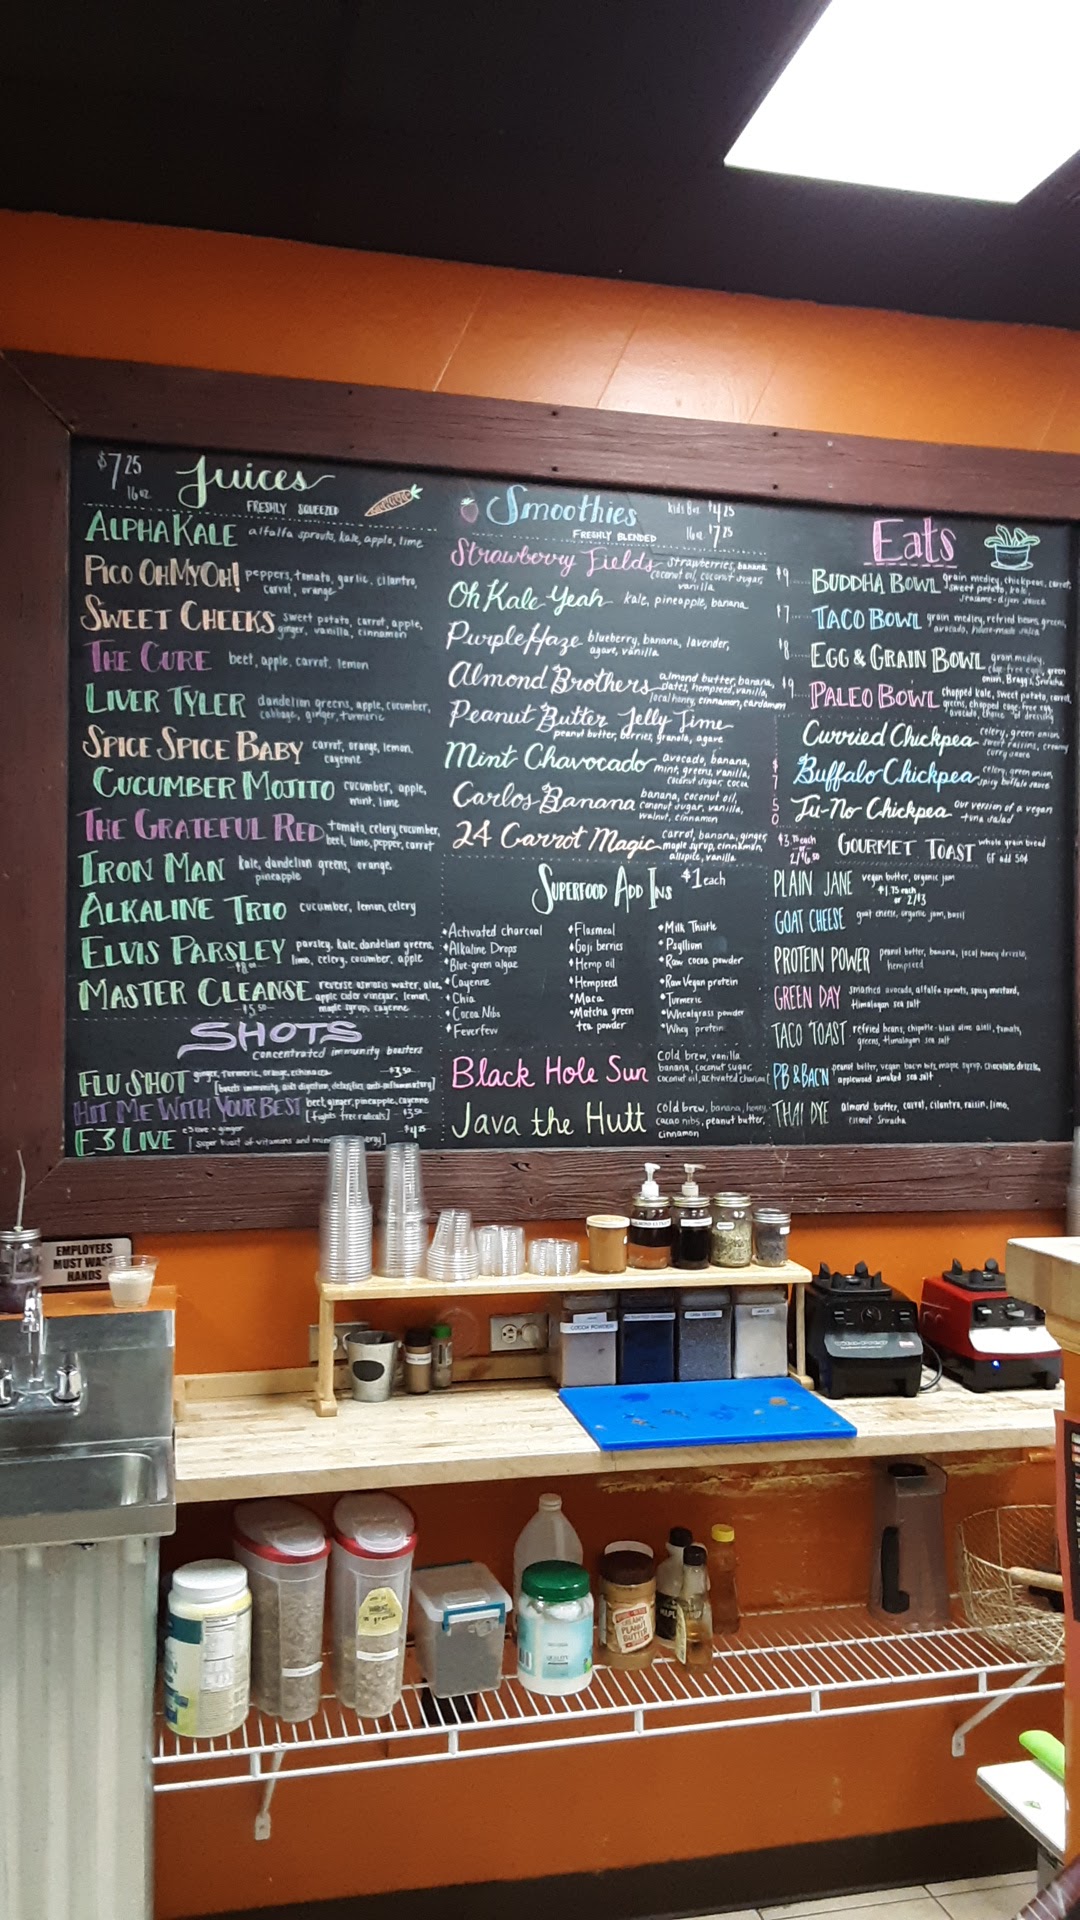 $7.25
16 oz
Juices
FRESHLY SQUEEZED
ALPHAKALE alfalfa sprouts, kale, apple, lime
PICO OHMYOH! peppers, tomato, garlic, cilantro,
carrot, orange
SWEET CHEEKS sweet potato, carrot, apple,
ginger, vanilla, cinnamon
THE CURE beet, apple, carrot, lemon
LIVER TYLER dandelion greens, apple, cucumber,
cabbage, ginger, turmeric
SPICE SPICE BABY carrot, orange, lemon,
cayenne
CUCUMBER MOJITO cucumber, apple,
mint, lime
THE GRATEFUL RED tomato, celery, cucumber,
beet, lime, pepper, carrot
IRON MAN kale, dandelion greens, orange,
pineapple
ALKALINE TRIO cucumber, lemon, celery
ELVIS PARSLEY parsley, kale, dandelion greens,
lime, celery, cucumber, apple
MASTER CLEANSE reverse osmosis water, aloe,
apple cider vinegar, lemon,
maple syrup, cayenne
SHOTS
concentrated immunity boosters
FLU SHOT ginger, turmeric, orange, echinacea $3.50
[boosts immunity, aids digestion, detoxifies, anti-inflammatory]
HIT ME WITH YOUR BEST beet, ginger, pineapple, cayenne
[fights free radicals] $3.50
E3 LIVE e3 live + ginger
[super boost of vitamins and
Smoothies
kids 8oz $4.25
FRESHLY BLENDED 16oz $7.25
Strawberry Fields strawberries, banana
coconut oil, coconut sugar,
vanilla
Oh Kale Yeah kale, pineapple, banana
Purple Haze blueberry, banana, lavender,
agave, vanilla
Almond Brothers almond butter, banana,
dates, hempseed, vanilla,
local honey, cinnamon, cardamom
Peanut Butter Jelly Time
peanut butter, berries, granola, agave
Mint Chavocado avocado, banana,
mint, greens, vanilla,
coconut sugar, cocoa
Carlos Banana banana, coconut oil,
coconut sugar, vanilla,
walnut, cinnamon
24 Carrot Magic carrot, banana, ginger
maple syrup, cinnamon,
allspice, vanilla
SUPERFOOD ADD INS $1 each
Activated charcoal
Alkaline Drops
Blue-green algae
Cayenne
Chia
Cocoa Nibs
Feverfew
Flaxmeal
Goji berries
Hemp oil
Hempseed
Maca
Matcha green
tea powder
Milk Thistle
Psyllium
Raw cocoa powder
Raw Vegan protein
Turmeric
Wheatgrass powder
Whey protein
Black Hole Sun cold brew, vanilla
banana, coconut sugar
coconut oil, activated charcoal
Java the Hutt cold brew, banana, honey
cacao nibs, peanut butter,
cinnamon
Eats
$9 BUDDHA BOWL grain medley, chickpeas, carrot,
sweet potato, kale,
sesame-dijon sauce
$7 TACO BOWL grain medley, refried beans, greens,
avocado, house-made salsa
$8 EGG & GRAIN BOWL grain medley,
cage-free eggs, green
onion, Bragg's, Sriracha
$9 PALEO BOWL chopped kale, sweet potato, carrot,
greens, chopped cage-free egg,
avocado, choice of dressing
$7.50
Curried Chickpea celery, green onion,
sweet raisins, creamy
curry sauce
Buffalo Chickpea celery, green onion,
spicy buffalo sauce
Tu-No Chickpea our version of a vegan
tuna salad
$3.75 each
or
2/$6.50
GOURMET TOAST whole grain bread
GF add 50¢
PLAIN JANE vegan butter, organic jam
$1.75 each
or 2/$3
GOAT CHEESE goat cheese, organic jam, basil
PROTEIN POWER peanut butter, banana, local honey drizzle,
hempseed
GREEN DAY smashed avocado, alfalfa sprouts, spicy mustard,
Himalayan sea salt
TACO TOAST refried beans, chipotle-black olive aioli, tomato,
greens, Himalayan sea salt
PB & BACN peanut butter, vegan bacn bits, maple syrup, chocolate drizzle,
applewood smoked sea salt
THAI DYE almond butter, carrot, cilantro, raisin, lime,
coconut Sriracha
EMPLOYEES
MUST WASH
HANDS
COCOA POWDER
CREAMY
PEANUT
BUTTER
MAPLE